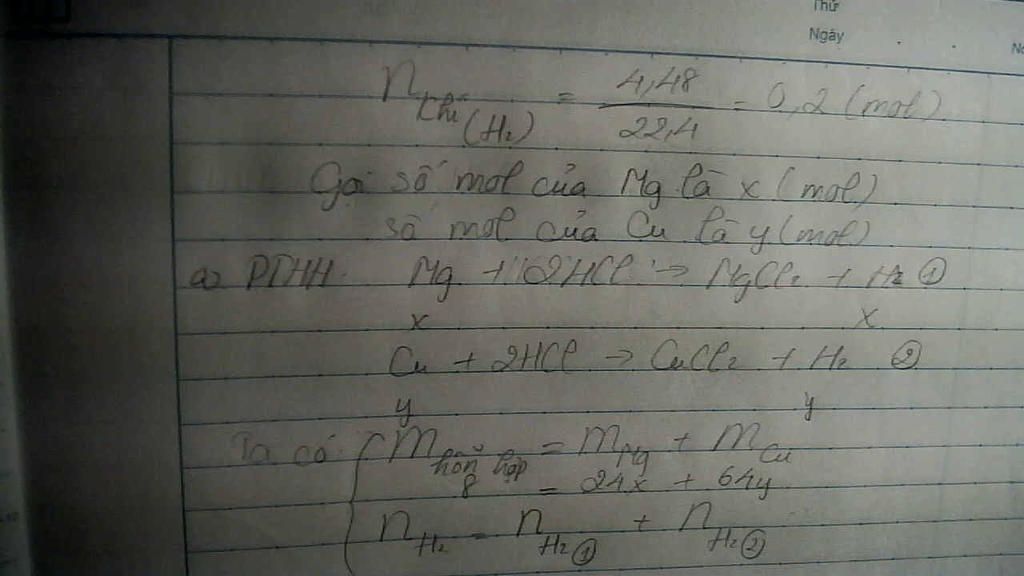 Thứ
Ngày
n khí (H₂) = 4,48 / 22,4 = 0,2 (mol)
Gọi số mol của Mg là x (mol)
số mol của Cu là y (mol)
a) PTHH: Mg + 2HCl → MgCl₂ + H₂ ①
x x
Cu + 2HCl → CuCl₂ + H₂ ②
y y
Ta có { m hỗn hợp = m Mg + m Cu
8 = 24x + 64y
n H₂ = n H₂ ① + n H₂ ②